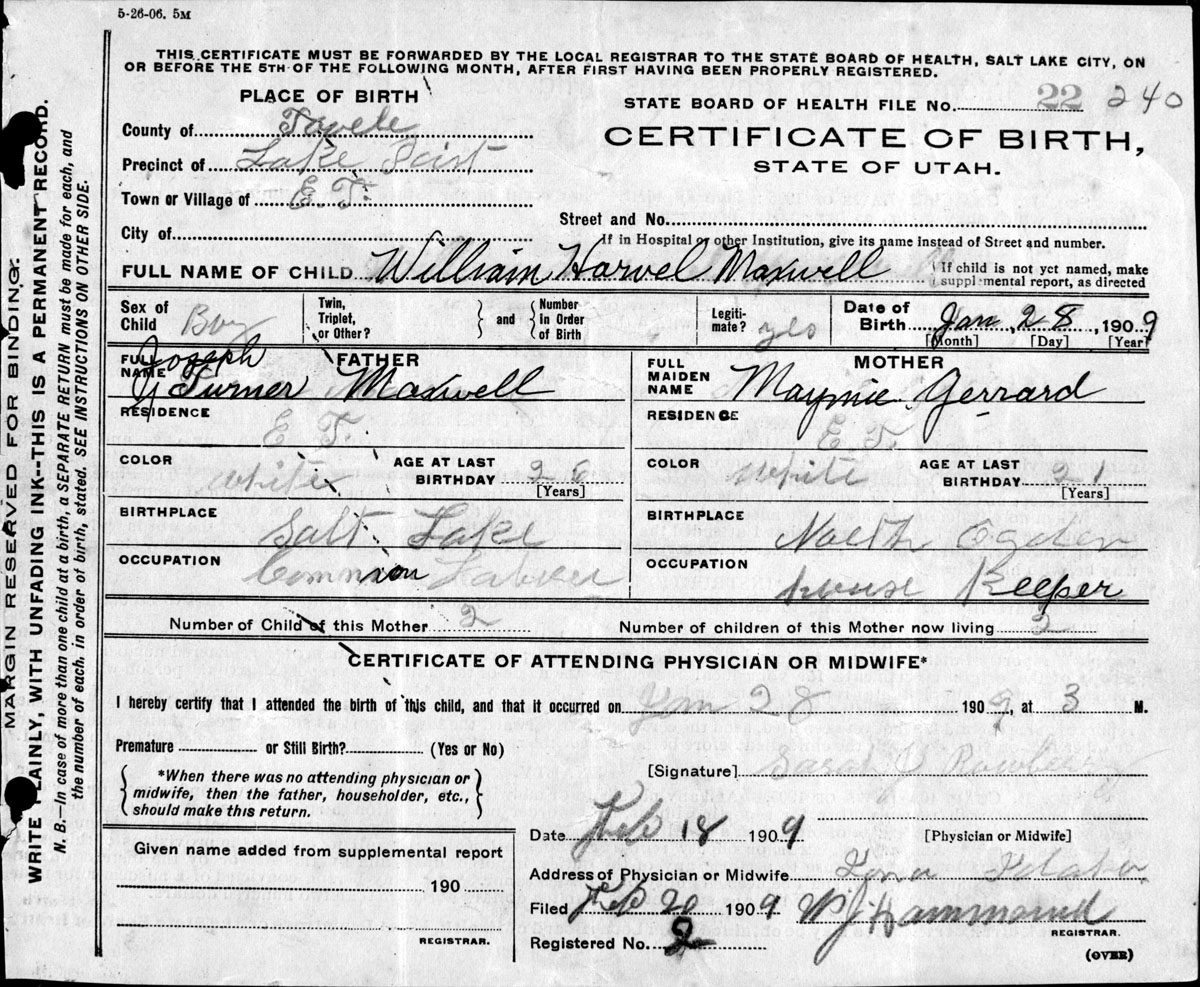 5-26-06. 5M
THIS CERTIFICATE MUST BE FORWARDED BY THE LOCAL REGISTRAR TO THE STATE BOARD OF HEALTH, SALT LAKE CITY, ON
OR BEFORE THE 5TH OF THE FOLLOWING MONTH, AFTER FIRST HAVING BEEN PROPERLY REGISTERED.
PLACE OF BIRTH
STATE BOARD OF HEALTH FILE No. 22 240
County of Tooele
CERTIFICATE OF BIRTH,
Precinct of Lake
STATE OF UTAH.
Town or Village of E. T.
Street and No.
City of
If in Hospital or other Institution, give its name instead of Street and number.
FULL NAME OF CHILD William Harvel Maxwell
If child is not yet named, make
supplemental report, as directed
Sex of Child Boy
Twin, Triplet, or Other?
and
Number in Order of Birth
Legitimate? yes
Date of Birth Jan 28, 1909
[Month] [Day] [Year]
FULL NAME FATHER
Joseph
Turner Maxwell
FULL MAIDEN NAME MOTHER
Maymie Gerrard
RESIDENCE E. T.
RESIDENCE E. T.
COLOR white AGE AT LAST BIRTHDAY 26 [Years]
COLOR White AGE AT LAST BIRTHDAY 21 [Years]
BIRTHPLACE Salt Lake
BIRTHPLACE North Ogden
OCCUPATION Common Laborer
OCCUPATION house Keeper
Number of Child of this Mother 2
Number of children of this Mother now living 2
CERTIFICATE OF ATTENDING PHYSICIAN OR MIDWIFE*
I hereby certify that I attended the birth of this child, and that it occurred on Jan 28 1909, at 3 M.
Premature or Still Birth? (Yes or No)
*When there was no attending physician or
midwife, then the father, householder, etc.,
should make this return.
[Signature] Sarah Rowberry
Date Feb 18 1909
[Physician or Midwife]
Given name added from supplemental report
190
REGISTRAR.
Address of Physician or Midwife
Filed Feb 20 1909 W J Hammond
REGISTRAR.
Registered No. 2
(OVER)
MARGIN RESERVED FOR BINDING.
WRITE PLAINLY, WITH UNFADING INK--THIS IS A PERMANENT RECORD.
N. B.—In case of more than one child at a birth, a SEPARATE RETURN must be made for each, and
the number of each, in order of birth, stated. SEE INSTRUCTIONS ON OTHER SIDE.